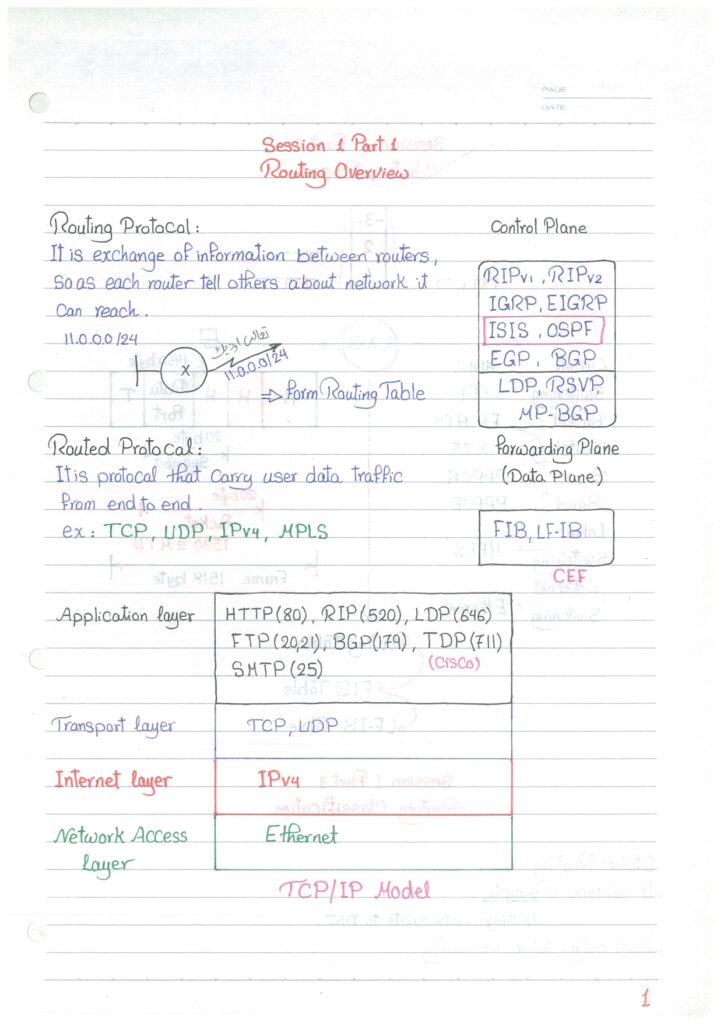 PAGE
DATE
Session 1 Part 1
Routing Overview
Routing Protocol:
It is exchange of information between routers,
so as each router tell others about network it
can reach.
11.0.0.0/24
X
11.0.0.0/24
⇒ Form Routing Table
Control Plane
RIPv1, RIPv2
IGRP, EIGRP
ISIS, OSPF
EGP, BGP
LDP, RSVP,
MP-BGP
Routed Protocal:
It is protocal that carry user data traffic
from end to end.
ex: TCP, UDP, IPv4, MPLS
Forwarding Plane
(Data Plane)
FIB, LF-IB
CEF
Application layer
HTTP(80), RIP(520), LDP(646)
FTP(20,21), BGP(179), TDP(711)
(Cisco)
SMTP(25)
Transport layer
TCP, UDP
Internet layer
IPv4
Network Access
layer
Ethernet
TCP/IP Model
1